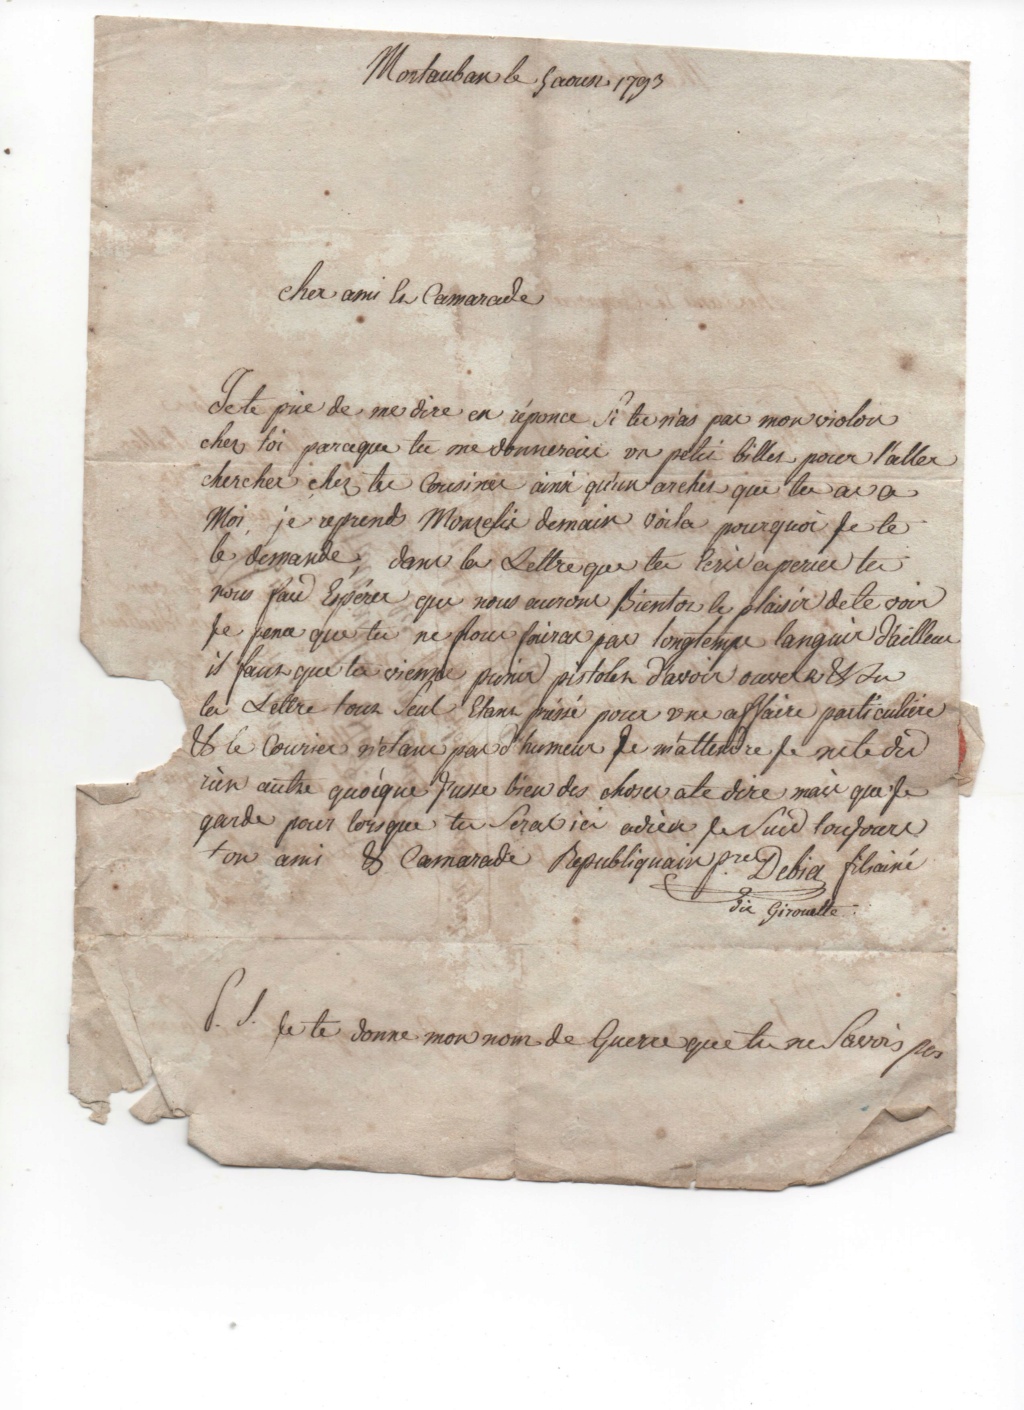 Montauban le 5 aoust 1793
cher ami Et Camarade
Je te prie de me dire en réponce Si tu n'as pas mon violon
chez toi parceque tu me donnerais un petit billet pour l'aller
chercher chez ta Cousine ainsi qu'un archet que tu as a
Moi, je reprend Monsesié demain voila pourquoi Je te
le demande, dans la Lettre que tu Ecris a perier tu
nous faid Espérer que nous aurons Bientot le plaisir de te voir
Je pence que tu ne nous fairas pas longtemps languir d'ailleur
il faut que tu vienne punir pistolet d'avoir ouvert & Lu
la Lettre tout Seul Etant prissé pour une affaire particulière
& le Courier n'etant pas d'humeur Je m'attendre Je ne te dis
rien autre quoique J'usse bien des choses a te dire mais que Je
garde pour lorsque tu Seras ici adieu Je Suis toujours
ton ami & Camarade Republiquain pre Debia fils ainé
dit Girouette
P. S. Je te donne mon nom de Guerre que tu ne Savois pas